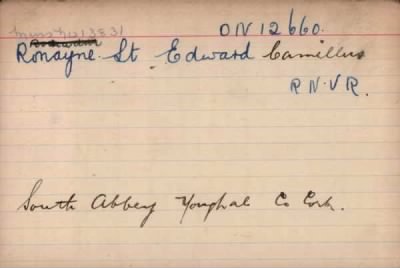 ON 12660.
Ronayne. Lt Edward Camillus
R.N.V.R.
South Abbey Youghal Co Cork.